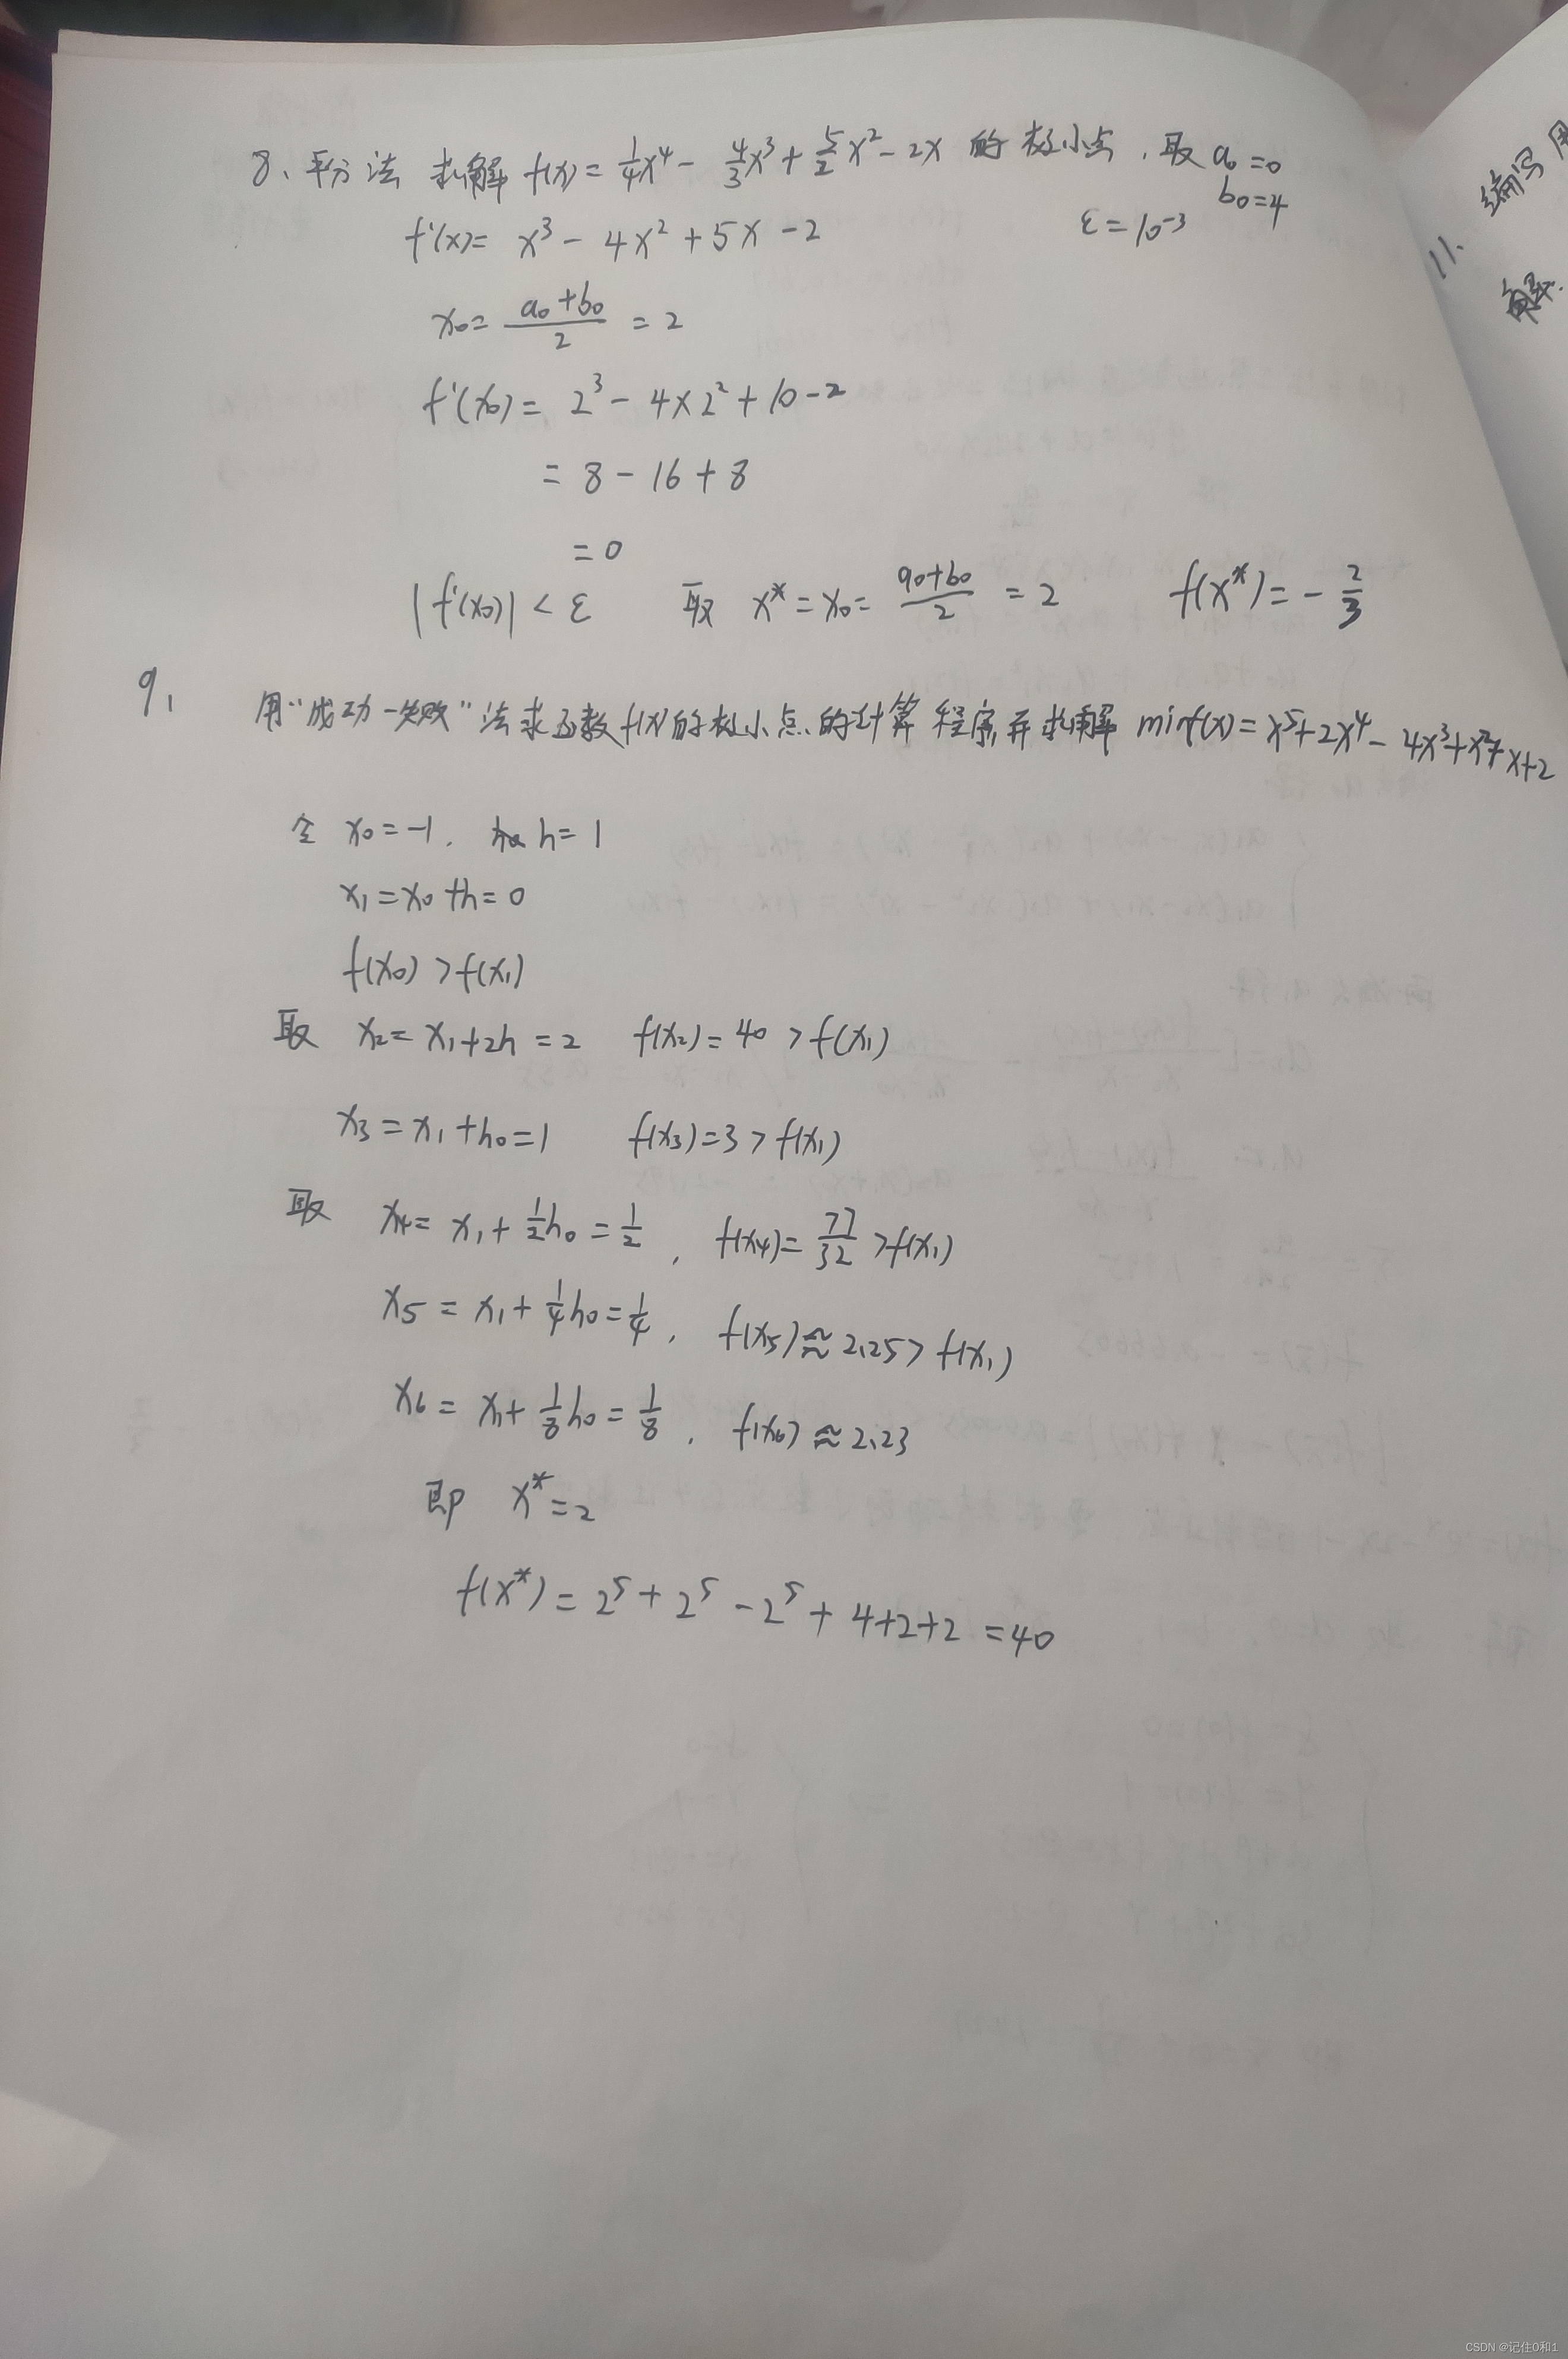 8、平分法 求解 f(x) = 1/4 x⁴ - 4/3 x³ + 5/2 x² - 2x 的极小点，取 a₀=0
b₀=4
ε=10⁻³
f'(x)= x³ - 4x² + 5x - 2
x₀= (a₀+b₀)/2 = 2
f'(x₀) = 2³ - 4×2² + 10 - 2
= 8 - 16 + 8
= 0
|f'(x₀)| < ε 取 x* = x₀ = (a₀+b₀)/2 = 2 f(x*) = - 2/3
9、
用“成功-失败”法求函数f(x)的极小点的计算程序,并求解 minf(x) = x⁵+2x⁴ - 4x³+x²+x+2
令 x₀=-1. h=1
x₁=x₀+h=0
f(x₀) > f(x₁)
取 x₂= x₁+2h = 2 f(x₂)= 40 > f(x₁)
x₃ = x₁+h₀=1 f(x₃)=3 > f(x₁)
取 x₄= x₁ + 1/2 h₀ = 1/2 , f(x₄)= 77/32 > f(x₁)
x₅ = x₁ + 1/4 h₀ = 1/4 , f(x₅) ≈ 2.25 > f(x₁)
x₆ = x₁ + 1/8 h₀ = 1/8 , f(x₆) ≈ 2.23
即 x* = 2
f(x*) = 2⁵ + 2⁵ - 2⁵ + 4+2+2 = 40
11. 编写用
解:
CSDN @记住0和1